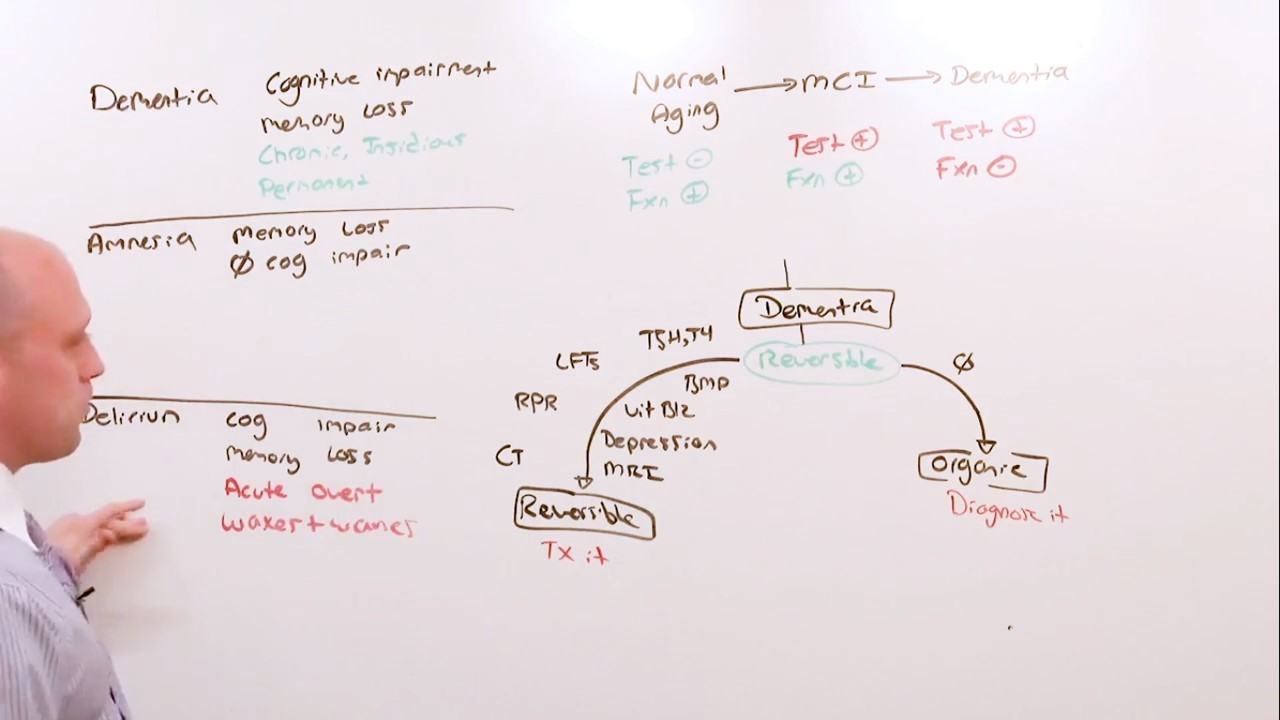 Dementia Cognitive impairment
memory Loss
Chronic, Insidious
Permanent
Amnesia memory Loss
Ø cog impair
Delirium cog impair
memory Loss
Acute overt
waxes + wanes
Normal Aging → MCI → Dementia
Test ⊖ Test ⊕ Test ⊕
Fxn ⊕ Fxn ⊕ Fxn ⊖
Dementia
Reversible
TSH, T4
LFTs
BMP
RPR
Vit B12
Depression
CT
MRI
Reversible
Tx it
Ø
Organic
Diagnose it